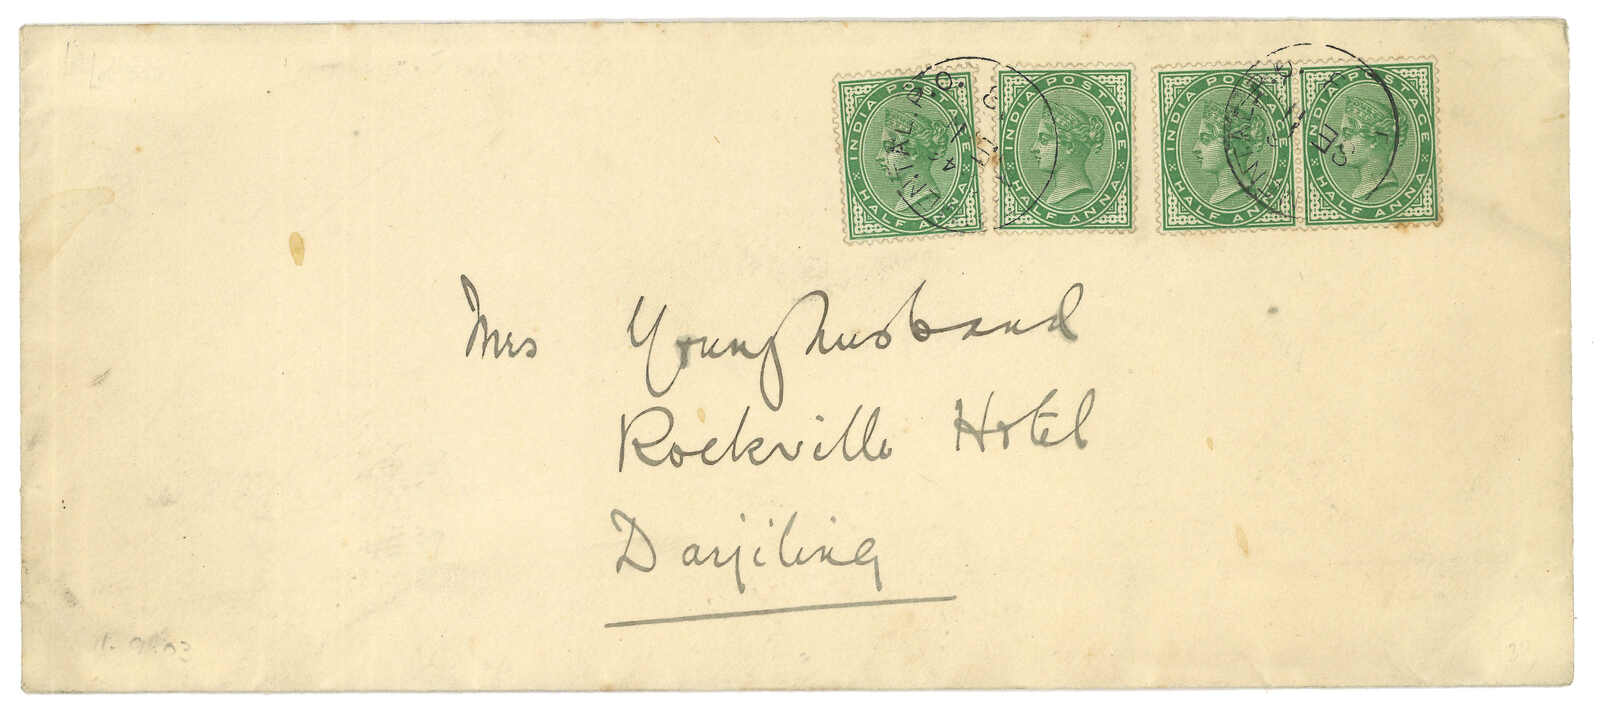 INDIA POSTAGE
HALF ANNA
INDIA POSTAGE
HALF ANNA
INDIA POSTAGE
HALF ANNA
INDIA POSTAGE
HALF ANNA
Mrs Younghusband
Rockville Hotel
Darjiling